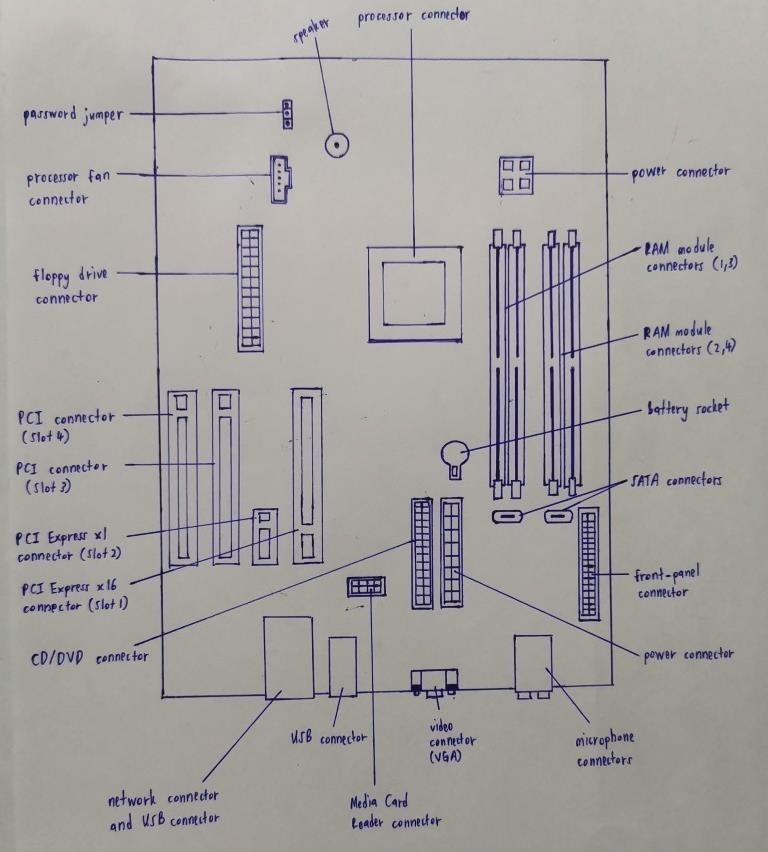 speaker
processor connector
password jumper
processor fan
connector
power connector
floppy drive
connector
RAM module
connectors (1,3)
RAM module
connectors (2,4)
PCI connector
(slot 4)
Battery socket
PCI connector
(slot 3)
SATA connectors
PCI Express x1
connector (slot 2)
PCI Express x16
connector (slot 1)
front-panel
connector
CD/DVD connector
power connector
USB connector
video
connector
(VGA)
microphone
connectors
network connector
and USB connector
Media Card
Reader connector